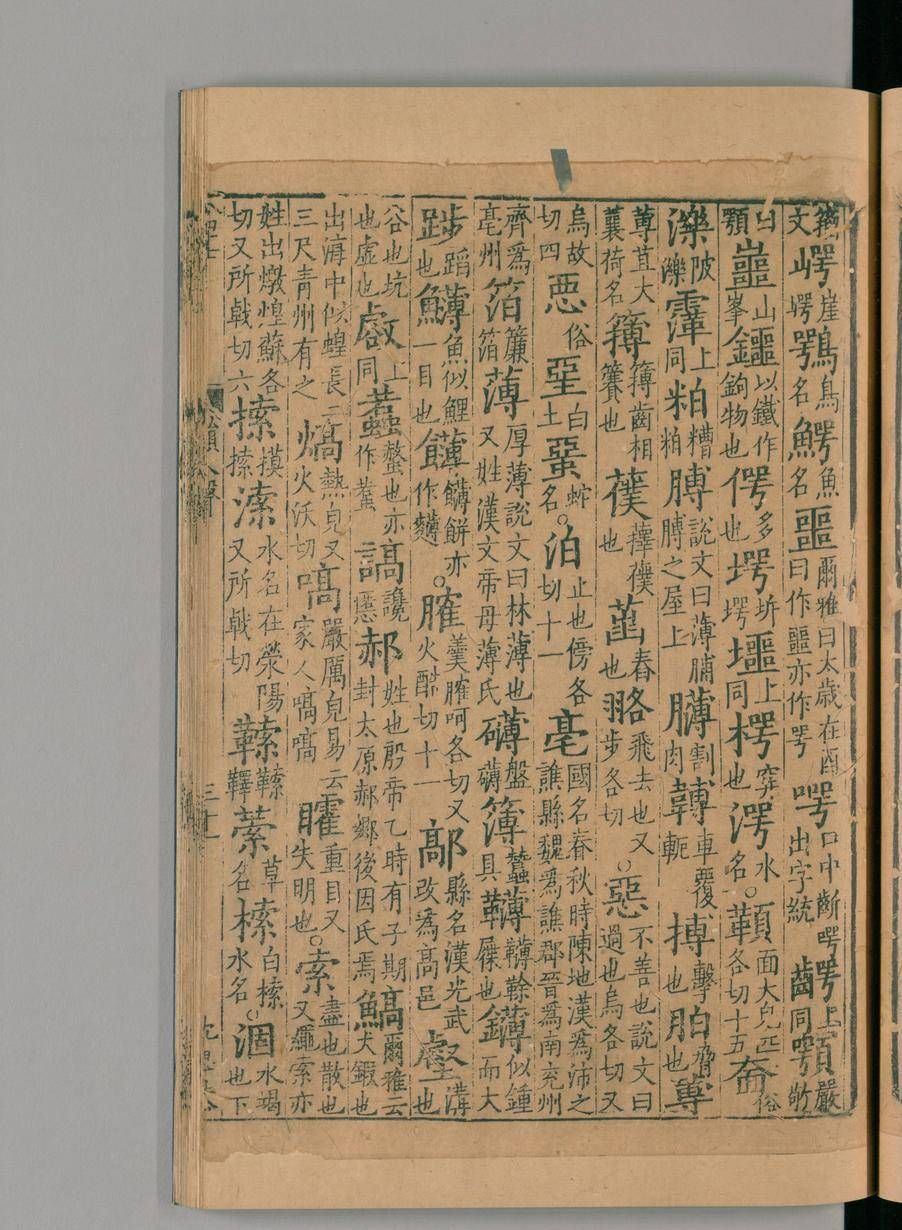 文崿崖崿鶚鳥名鰐魚名噩爾雅曰太歲在酉曰作噩亦作咢㗁口中斷咢出字統上同顎嚴敬
曰顎山峯以鐵作鉤物也偔多也堮圻堮上同㮙也湂水名○面大皃匹各切十五俗
濼陂濼上同粕糟粕膊說文曰薄脯膊之屋上割肉車覆軛搏擊也胉脅也蓴
蓴苴大蘘荷名簙簙齒相簺也也春也飛去也又步各切○惡不善也說文曰過也烏各切又
烏故切四𢙣俗堊白土蝁蛇名○泊止也傍各切十一亳國名春秋時陳地漢為沛之譙縣魏為譙郡晉為南兗州
齊為亳州箔簾箔薄厚薄說文曰林薄也又姓漢文帝母薄氏礴盤礴簿蠶具屧也鑮似鍾而大
蹈也魚似鯉一目也餺餺餅亦作○臛羹臛呵各切又火酷切十一鄗縣名漢光武改為高邑壑溝也
谷也坑也虛也上同蠚螫也亦作謞讒慝郝姓也殷帝乙時有子期封太原郝鄉後因氏焉鰝爾雅云大鰕也
出海中似蝗長二三尺青州有之熇熱皃又火沃切嗃嚴厲皃易云家人嗃嗃矐重目又失明也○索盡也散也又繩索亦
姓出燉煌蘇各切又所戟切六摸溹水名在滎陽又所戟切草名白木名○涸水竭也下
韻入聲 三十一